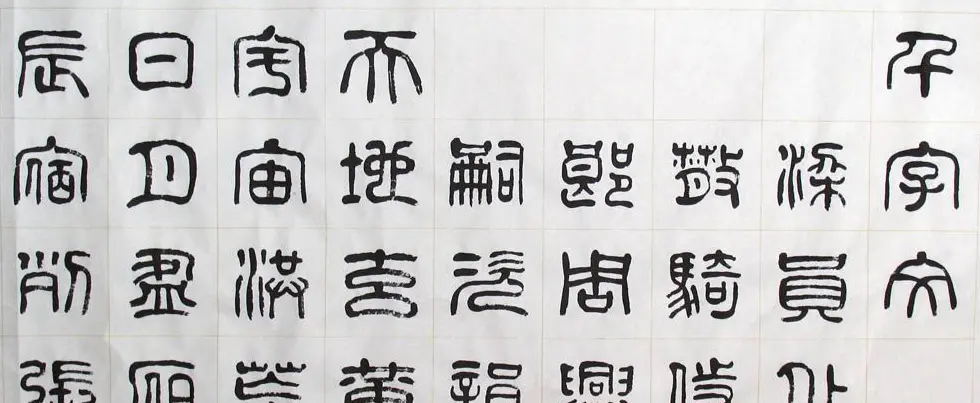 千字文
梁員外
散騎侍
郎周興
嗣次韻
天地玄黃
宇宙洪荒
日月盈昃
辰宿列張